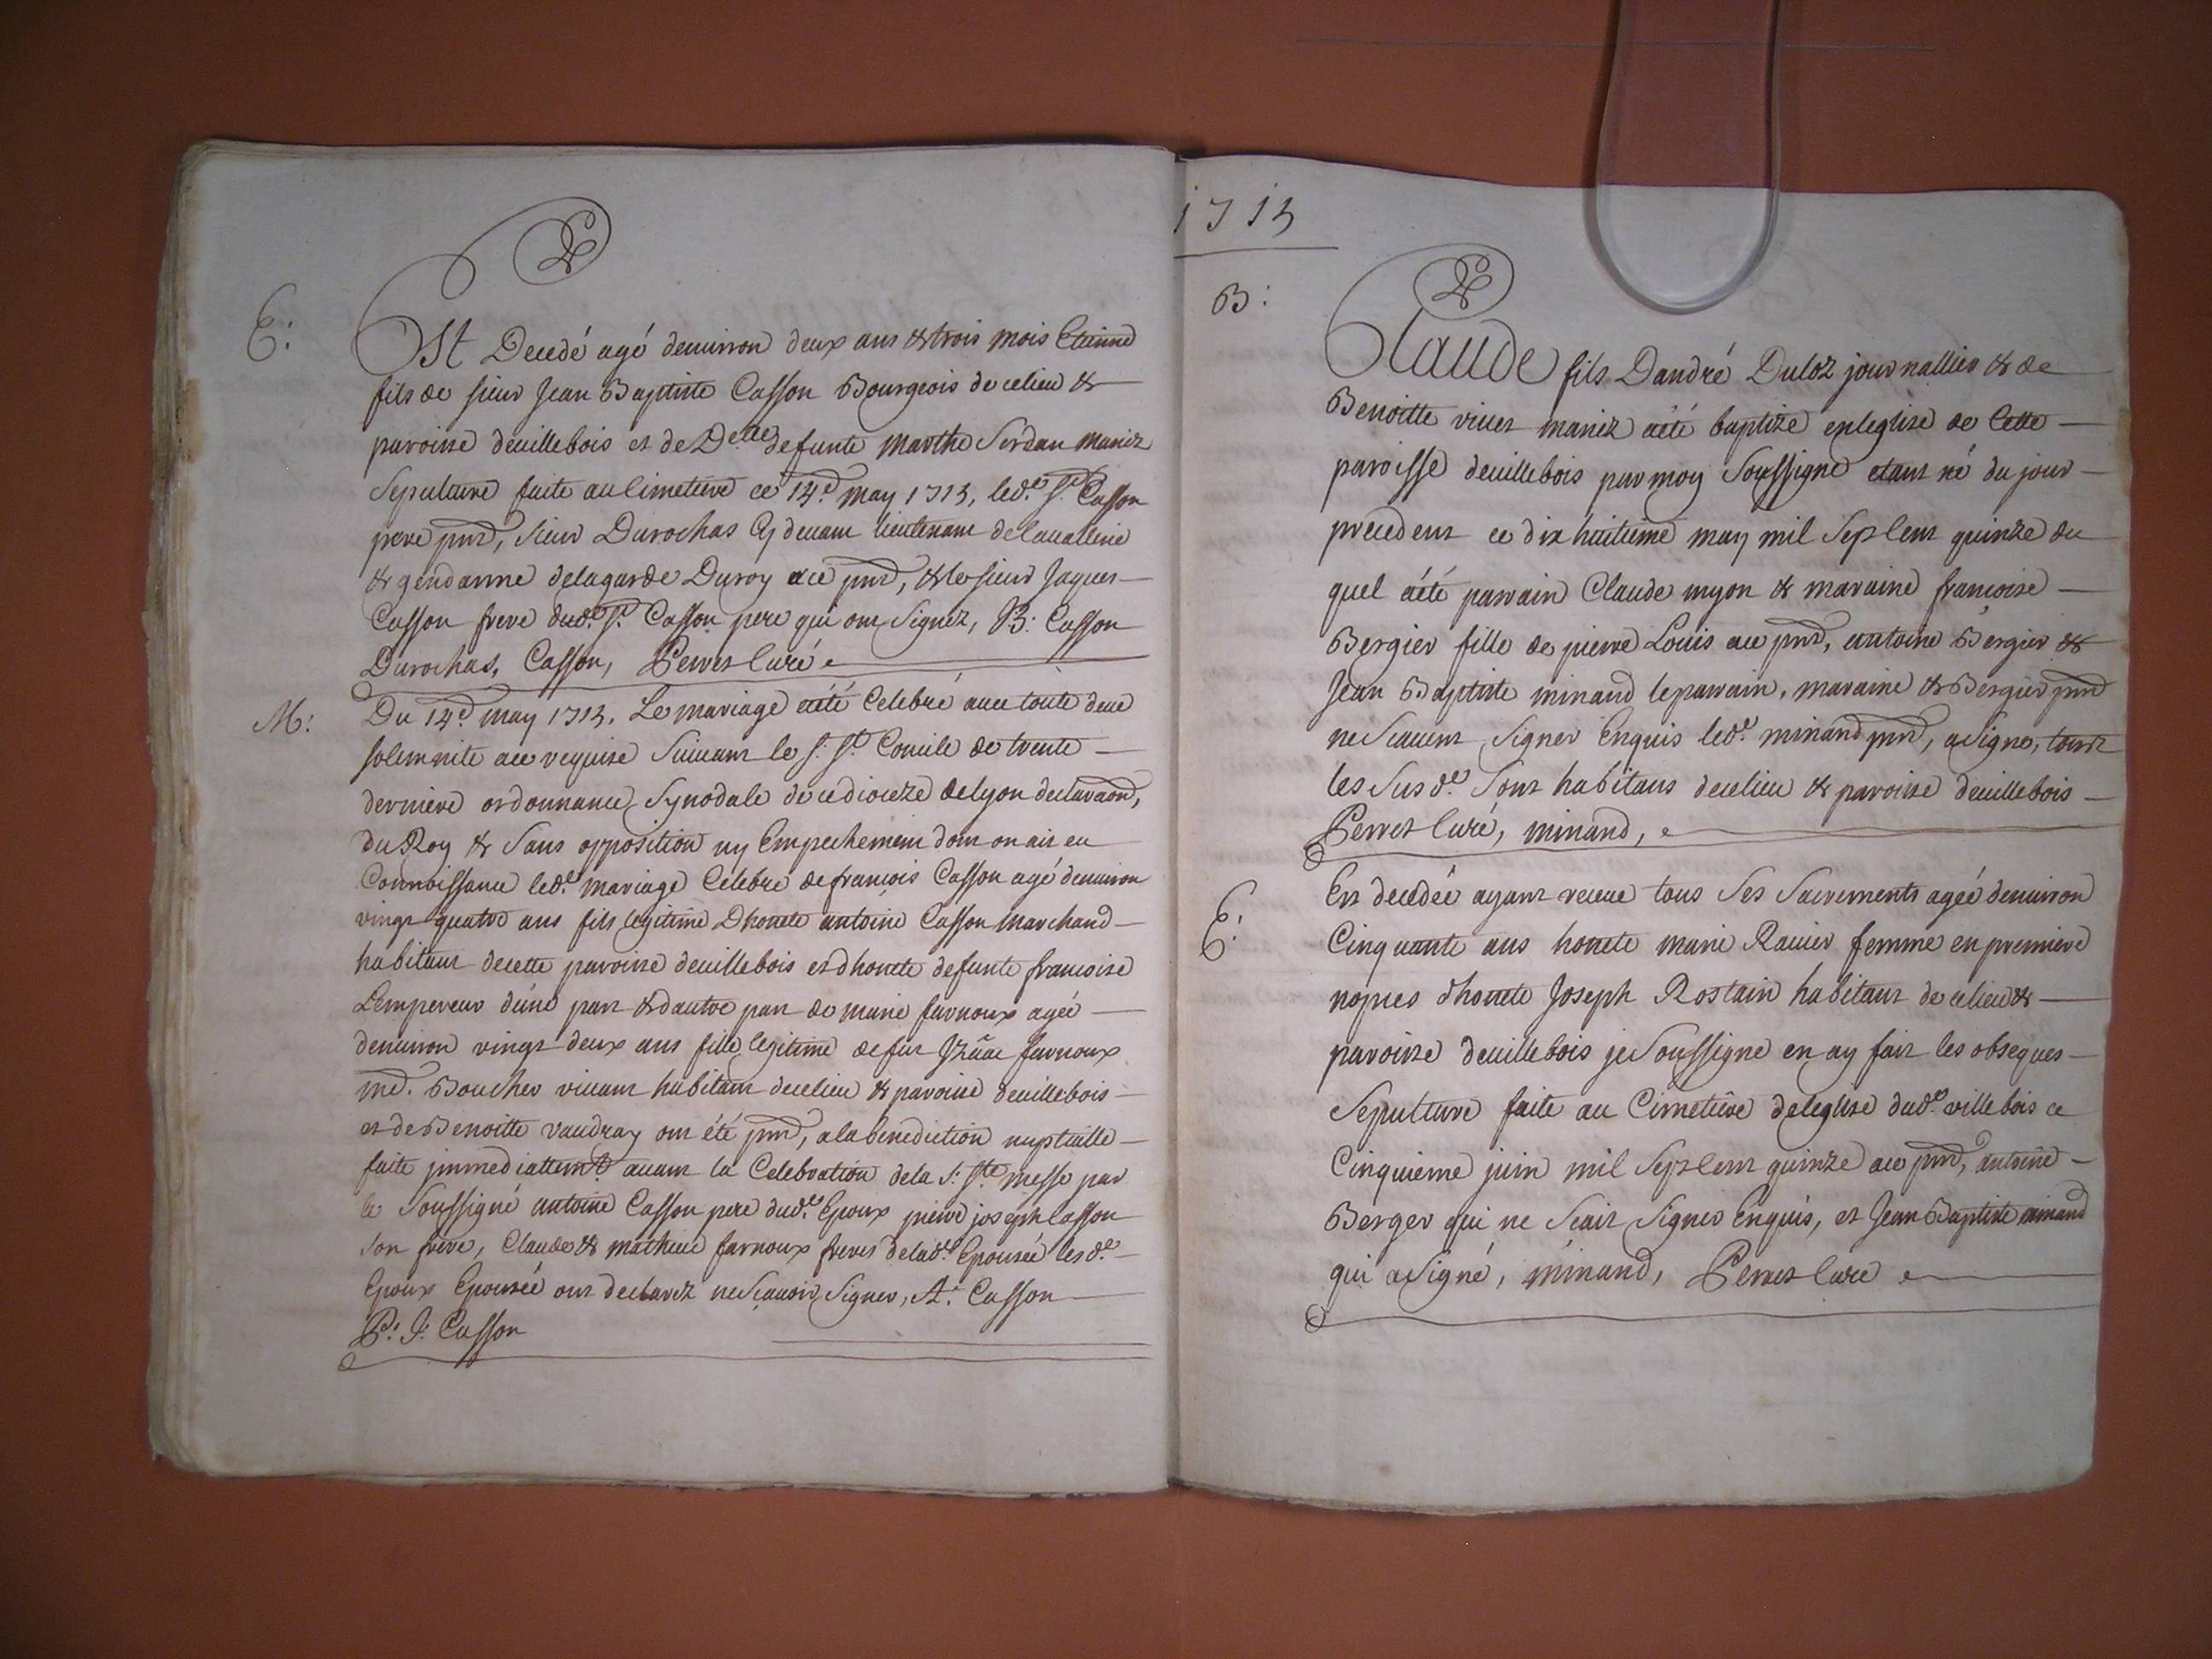 E:
Est Decedé agé denuiron deux ans & trois mois Etienne
fils de sieur Jean Baptiste Casson Bourgeois de celieu &
paroisse deuillebois et de Delle defunte Marthe Serdan mariez
Sepulture faite au Cimetiere ce 14e may 1715, led.e s.r Casson
pere pnt, sieur Durochas Cy deuant lieutenant de caualleire
& gendarme delagarde Duroy ace pnt, & le sieur Jaques
Casson frere dud.e s.r Casson pere qui ont signez, B: Casson
Durochas, Casson, Perret Curé
M:
Du 14e may 1715. Le mariage aeté Celebré auec toute deue
solemnite ace requise Suiuant le s. st. Concile de trente
derniere ordonnance Synodale de cedioceze delyon declaraon,
du Roy & Sans opposition ny Empechement dont on ait eu
Connoissance led.e mariage Celebre defrancois Casson agé denuiron
vingt quatre ans fils legitime Dhonete antoine Casson Marchand
habitant decette paroisse deuillebois et dhonete defunte francoise
Lempereur d'une part & dautre part de marie farnoux agée
denuiron vingt deux ans fille legitime defut Izãac farnoux
md. Boucher viuant habitant decelieu & paroisse deuillebois
et de Benoitte vaudray ont été pnt, alabenediction nuptialle
faite jmmediattemt. auant la Celebration dela s: ste messe par
le Soussigné antoine Casson pere dud.e Epoux pierre joseph Casson
son frere, Claude & mathieu farnoux freres delad.e Epousée lesd.e
Epoux Epousée ont declarez nescauoir signer, A: Casson
P: J: Casson
1715
B:
Claude fils Dandré Duloz journallier & de
Benoitte viuet mariez aété baptizé enleglise de Cette
paroisse deuillebois par moy Soussigné etant né du jour
precedent ce dix huitieme may mil Sept Cent quinze du
quel aété parrain Claude myon & maraine francoise
Bergier fille de pierre Louis ace pnt, antoine Bergier &
Jean Baptiste minand leparrain, maraine & Bergier pnt
nescauent signer Enquis led.e minand pnt, asigné, touts
les Susd.e Sont habitans decelieu & paroisse deuillebois
Perret Curé, minand,
E:
Est decedée ayant receue tous Ses Sacrements agée denuiron
Cinquante ans honete marie Rauier femme en premiere
nopces dhonete Joseph Rostain habitant de celieu &
paroisse deuillebois je Soussigné en ay fait les obseques
Sepulture faite au Cimetiere deleglise dud.e villebois ce
Cinquieme juin mil Sept Cent quinze ace pnt, antoine
Berger qui ne Scait signer Enquis, et Jean Baptiste minand
qui asigné, minand, Perret Curé